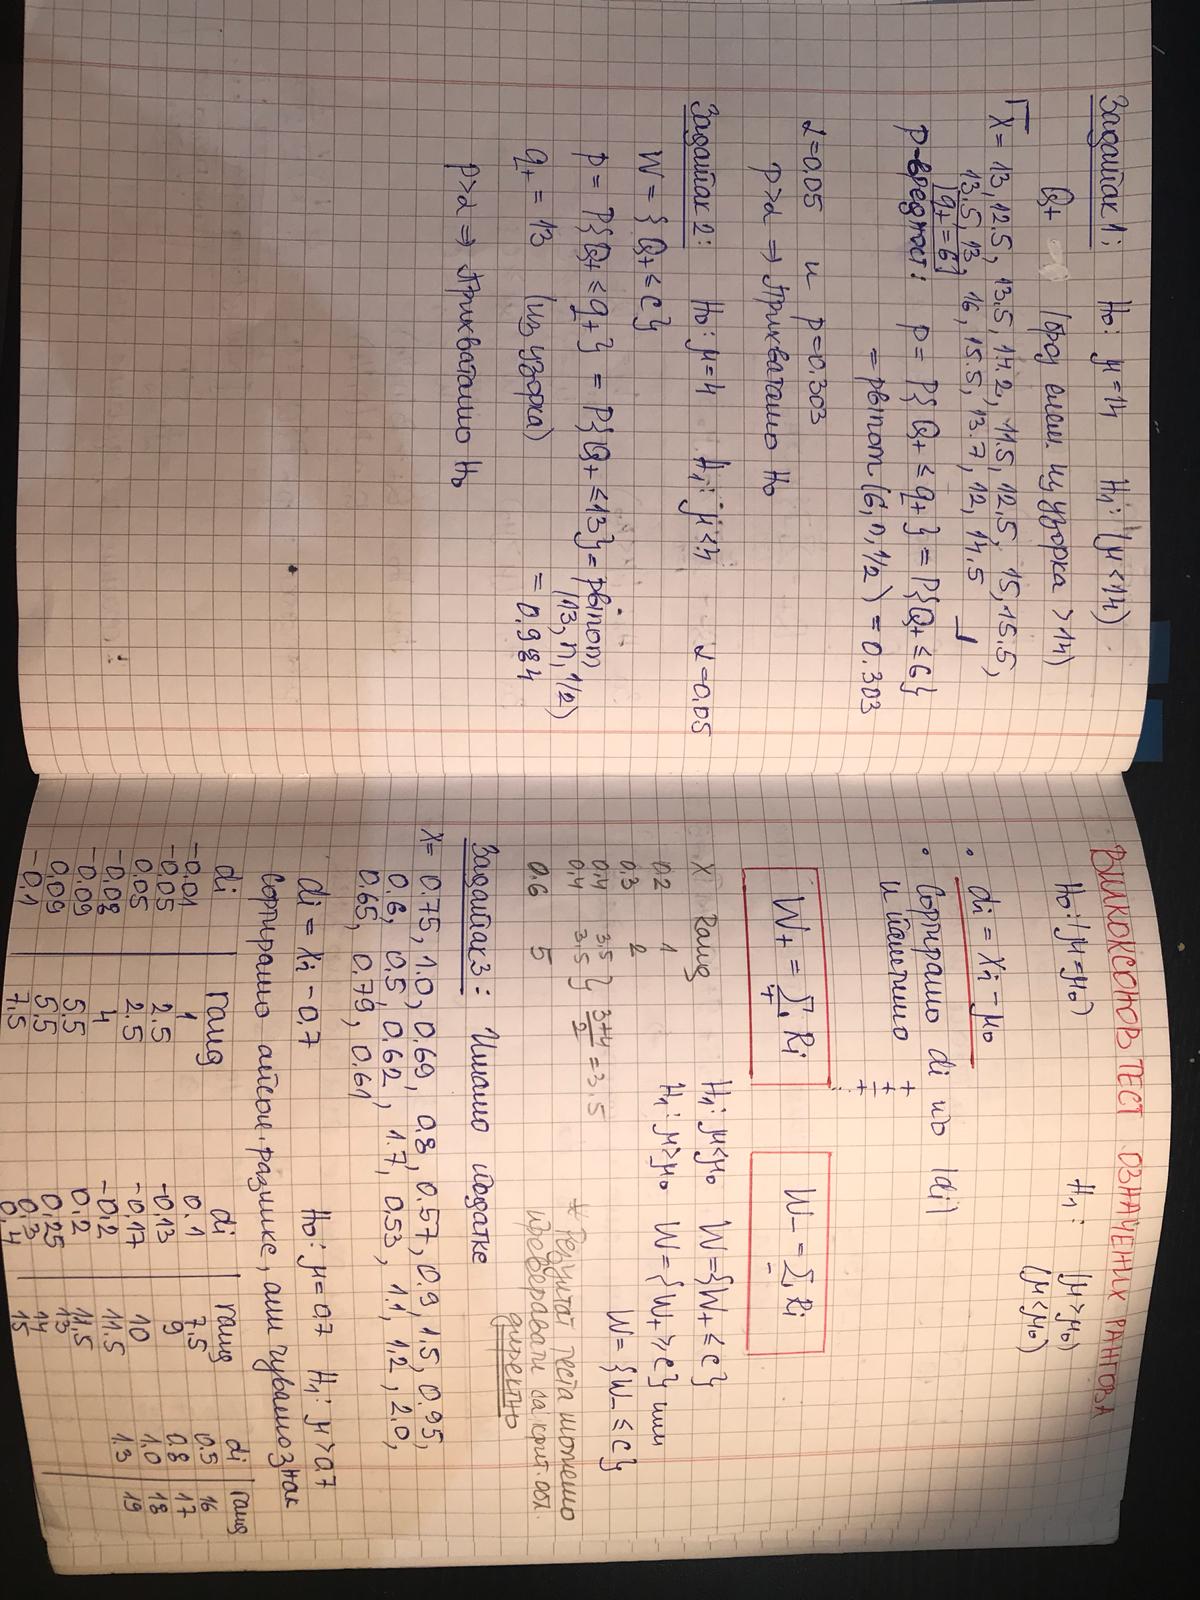 Задатак 1: H₀: μ=14 H₁: (μ<14)
Q₊ (број елем. из узорка >14)
X = 13, 12.5, 13.5, 14.2, 11.5, 12.5, 15, 15.5,
13.5, 13, 16, 15.5, 13.7, 12, 14.5
(q₊ = 6)
p-вредност: p = P{Q₊ ≤ q₊} = P{Q₊ ≤ 6}
= pbinom(6, n, 1/2) = 0.303
α=0.05 и p=0.303
p>α ⇒ прихватамо H₀
Задатак 2: H₀: μ=4 H₁: μ<4 α=0.05
W = {Q₊ ≤ c}
p = P{Q₊ ≤ q₊} = P{Q₊ ≤ 13} = pbinom(13, n, 1/2)
q₊ = 13 (из узорка) = 0.984
p>α ⇒ прихватамо H₀
ВИЛКОКСОНОВ ТЕСТ ОЗНАЧЕНИХ РАНГОВА
H₀: (μ=μ₀) H₁: (μ>μ₀)
(μ<μ₀)
• di = xi − μ₀
• Сортирамо di по |di|
и
W₊ = Σ₊ Ri W₋ = Σ₋ Ri
X Ранг H₁: μ<μ₀ W={W₊ ≤ c}
0.2 1 H₁: μ>μ₀ W={W₊ ≥ c} или
0.3 2 W={W₋ ≤ c}
0.4 3.5
0.4 3.5 } (3+4)/2 = 3.5
0.6 5
* Резултат теста можемо
проверавати са крит. обл.
директно
Задатак 3: Имамо податке
X = 0.75, 1.0, 0.69, 0.8, 0.57, 0.9, 1.5, 0.95,
0.6, 0.5, 0.62, 1.7, 0.53, 1.1, 1.2, 2.0,
0.65, 0.79, 0.61
di = xi − 0.7 H₀: μ=0.7 H₁: μ>0.7
Сортирамо апсол. разлике, али чувамо знак
di ранг di ранг di ранг
-0.01 1 0.1 7.5 0.5 16
-0.05 2.5 -0.13 9 0.8 17
0.05 2.5 -0.17 10 1.0 18
-0.08 4 -0.2 11.5 1.3 19
-0.09 5.5 0.2 11.5
0.09 5.5 0.25 13
-0.1 7.5 0.3 14
0.4 15